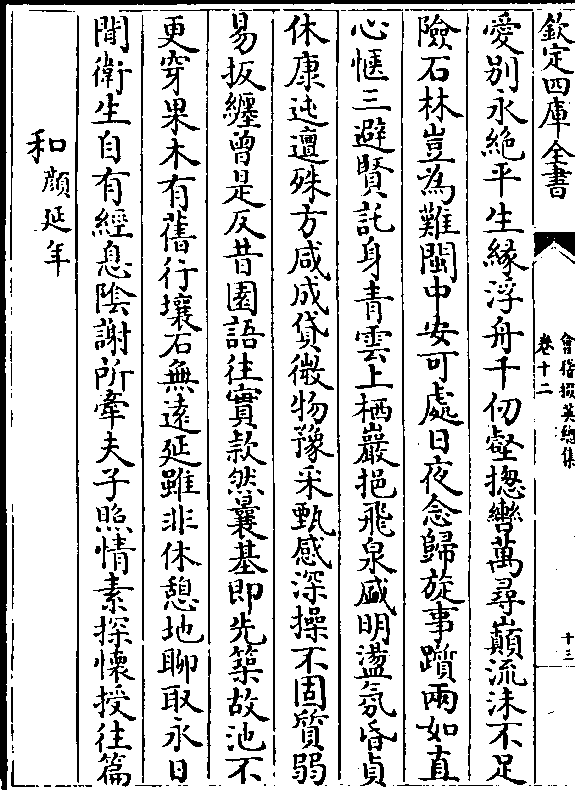 欽定四庫全書
會稽掇英總集
卷十二
十三
愛別永絶平生縁浮舟千仞壑揔轡萬尋巔流沬不足
險石林豈為難閩中安可處日夜念歸旋事躓兩如直
心愜三避賢託身青雲上栖巖挹飛泉盛明盪氛昏貞
休康迍邅殊方咸成貸微物豫采甄感深操不固質弱
易扳纏曾是反昔園語往實款然曩基即先築故池不
更穿果木有舊行壤石無遠延雖非休憩地聊取永日
閒衛生自有經息陰謝所牽夫子照情素探懷授往篇
和顔延年